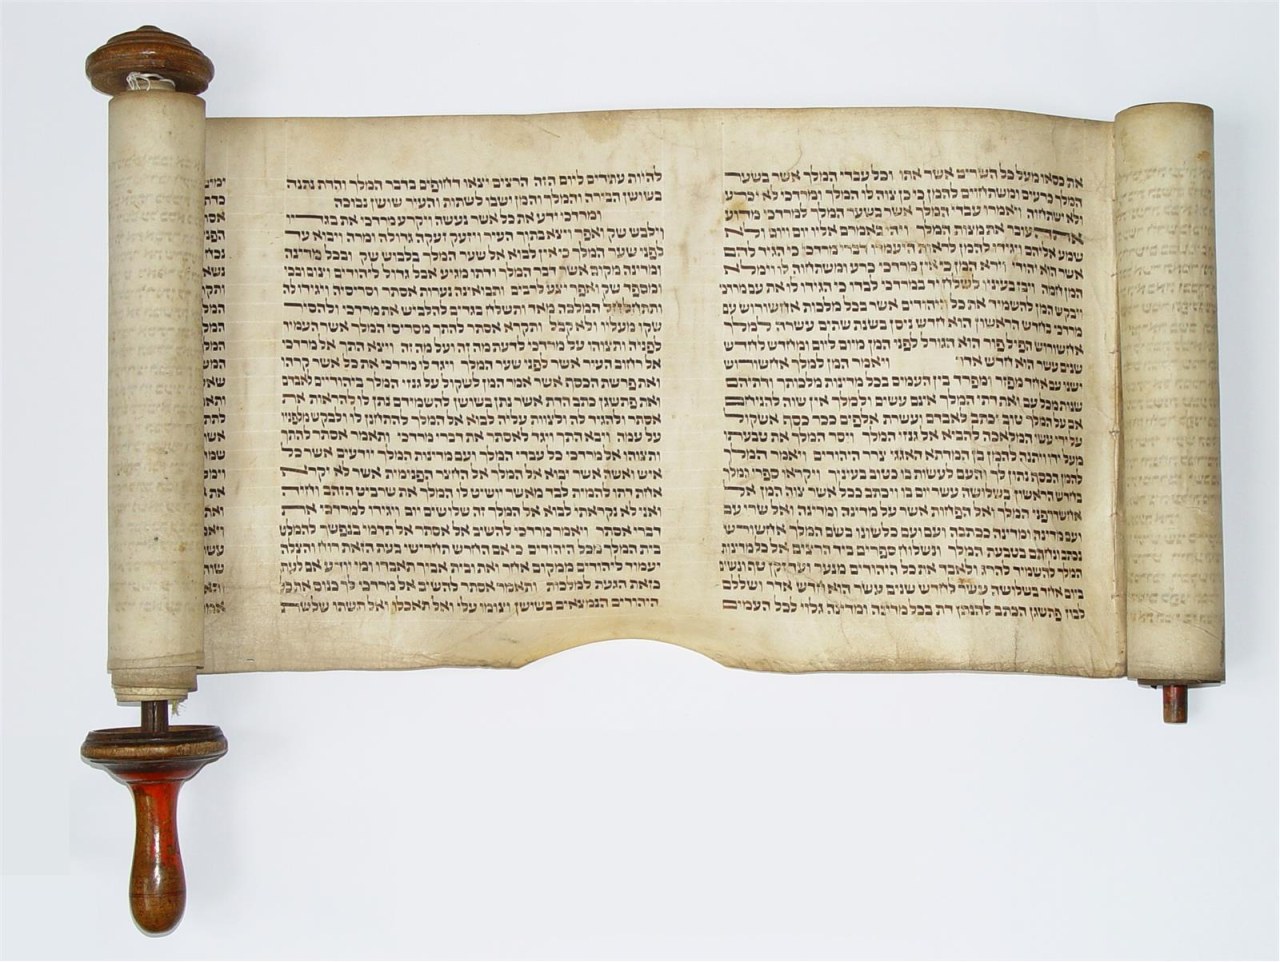 את כסאו מעל כל השרים אשר אתו וכל עבדי המלך אשר בשער
המלך כרעים ומשתחוים להמן כי כן צוה לו המלך ומרדכי לא יכרע
ולא ישתחוה ויאמרו עבדי המלך אשר בשער המלך למרדכי מדוע
אתה עובר את מצות המלך ויהי באמרם אליו יום ויום ולא
שמע אליהם ויגידו להמן לראות היעמדו דברי מרדכי כי הגיד להם
אשר הוא יהודי וירא המן כי אין מרדכי כרע ומשתחוה לו וימלא
המן חמה ויבז בעיניו לשלח יד במרדכי לבדו כי הגידו לו את עם מרדכי
ויבקש המן להשמיד את כל היהודים אשר בכל מלכות אחשורוש עם
מרדכי בחדש הראשון הוא חדש ניסן בשנת שתים עשרה למלך
אחשורוש הפיל פור הוא הגורל לפני המן מיום ליום ומחדש לחדש
שנים עשר הוא חדש אדר ויאמר המן למלך אחשורוש
ישנו עם אחד מפזר ומפרד בין העמים בכל מדינות מלכותך ודתיהם
שנות מכל עם ואת דתי המלך אינם עשים ולמלך אין שוה להניחם
אם על המלך טוב יכתב לאבדם ועשרת אלפים ככר כסף אשקול
על ידי עשי המלאכה להביא אל גנזי המלך ויסר המלך את טבעתו
מעל ידו ויתנה להמן בן המדתא האגגי צרר היהודים ויאמר המלך
להמן הכסף נתון לך והעם לעשות בו כטוב בעיניך ויקראו ספרי המלך
בחדש הראשון בשלושה עשר יום בו ויכתב ככל אשר צוה המן אל
אחשדרפני המלך ואל הפחות אשר על מדינה ומדינה ואל שרי עם
ועם מדינה ומדינה ככתבה ועם ועם כלשונו בשם המלך אחשורוש
נכתב ונחתם בטבעת המלך ונשלוח ספרים ביד הרצים אל כל מדינות
המלך להשמיד להרג ולאבד את כל היהודים מנער ועד זקן טף ונשים
ביום אחד בשלושה עשר לחדש שנים עשר הוא חדש אדר ושללם
לבוז פתשגן הכתב להנתן דת בכל מדינה ומדינה גלוי לכל העמים
להיות עתדים ליום הזה הרצים יצאו דחופים בדבר המלך והדת נתנה
בשושן הבירה והמלך והמן ישבו לשתות והעיר שושן נבוכה
ומרדכי ידע את כל אשר נעשה ויקרע מרדכי את בגדיו
וילבש שק ואפר ויצא בתוך העיר ויזעק זעקה גדולה ומרה ויבוא עד
לפני שער המלך כי אין לבוא אל שער המלך בלבוש שק ובכל מדינה
ומדינה מקום אשר דבר המלך ודתו מגיע אבל גדול ליהודים וצום ובכי
ומספד שק ואפר יצע לרבים ותבואינה נערות אסתר וסריסיה ויגידו לה
ותתחלחל המלכה מאד ותשלח בגדים להלביש את מרדכי ולהסיר
שקו מעליו ולא קבל ותקרא אסתר להתך מסריסי המלך אשר העמיד
לפניה ותצוהו על מרדכי לדעת מה זה ועל מה זה ויצא התך אל מרדכי
אל רחוב העיר אשר לפני שער המלך ויגד לו מרדכי את כל אשר קרהו
ואת פרשת הכסף אשר אמר המן לשקול על גנזי המלך ביהודיים לאבדם
ואת פתשגן כתב הדת אשר נתן בשושן להשמידם נתן לו להראות את
אסתר ולהגיד לה ולצוות עליה לבוא אל המלך להתחנן לו ולבקש מלפניו
על עמה ויבא התך ויגד לאסתר את דברי מרדכי ותאמר אסתר להתך
ותצוהו אל מרדכי כל עבדי המלך ועם מדינות המלך יודעים אשר כל
איש ואשה אשר יבוא אל המלך אל החצר הפנימית אשר לא יקרא
אחת דתו להמית לבד מאשר יושיט לו המלך את שרביט הזהב וחיה
ואני לא נקראתי לבוא אל המלך זה שלושים יום ויגידו למרדכי את
דברי אסתר ויאמר מרדכי להשיב אל אסתר אל תדמי בנפשך להמלט
בית המלך מכל היהודים כי אם החרש תחרישי בעת הזאת רוח והצלה
יעמוד ליהודים ממקום אחר ואת ובית אביך תאבדו ומי יודע אם לעת
כזאת הגעת למלכות ותאמר אסתר להשיב אל מרדכי לך כנוס את כל
היהודים הנמצאים בשושן וצומו עלי ואל תאכלו ואל תשתו שלשת